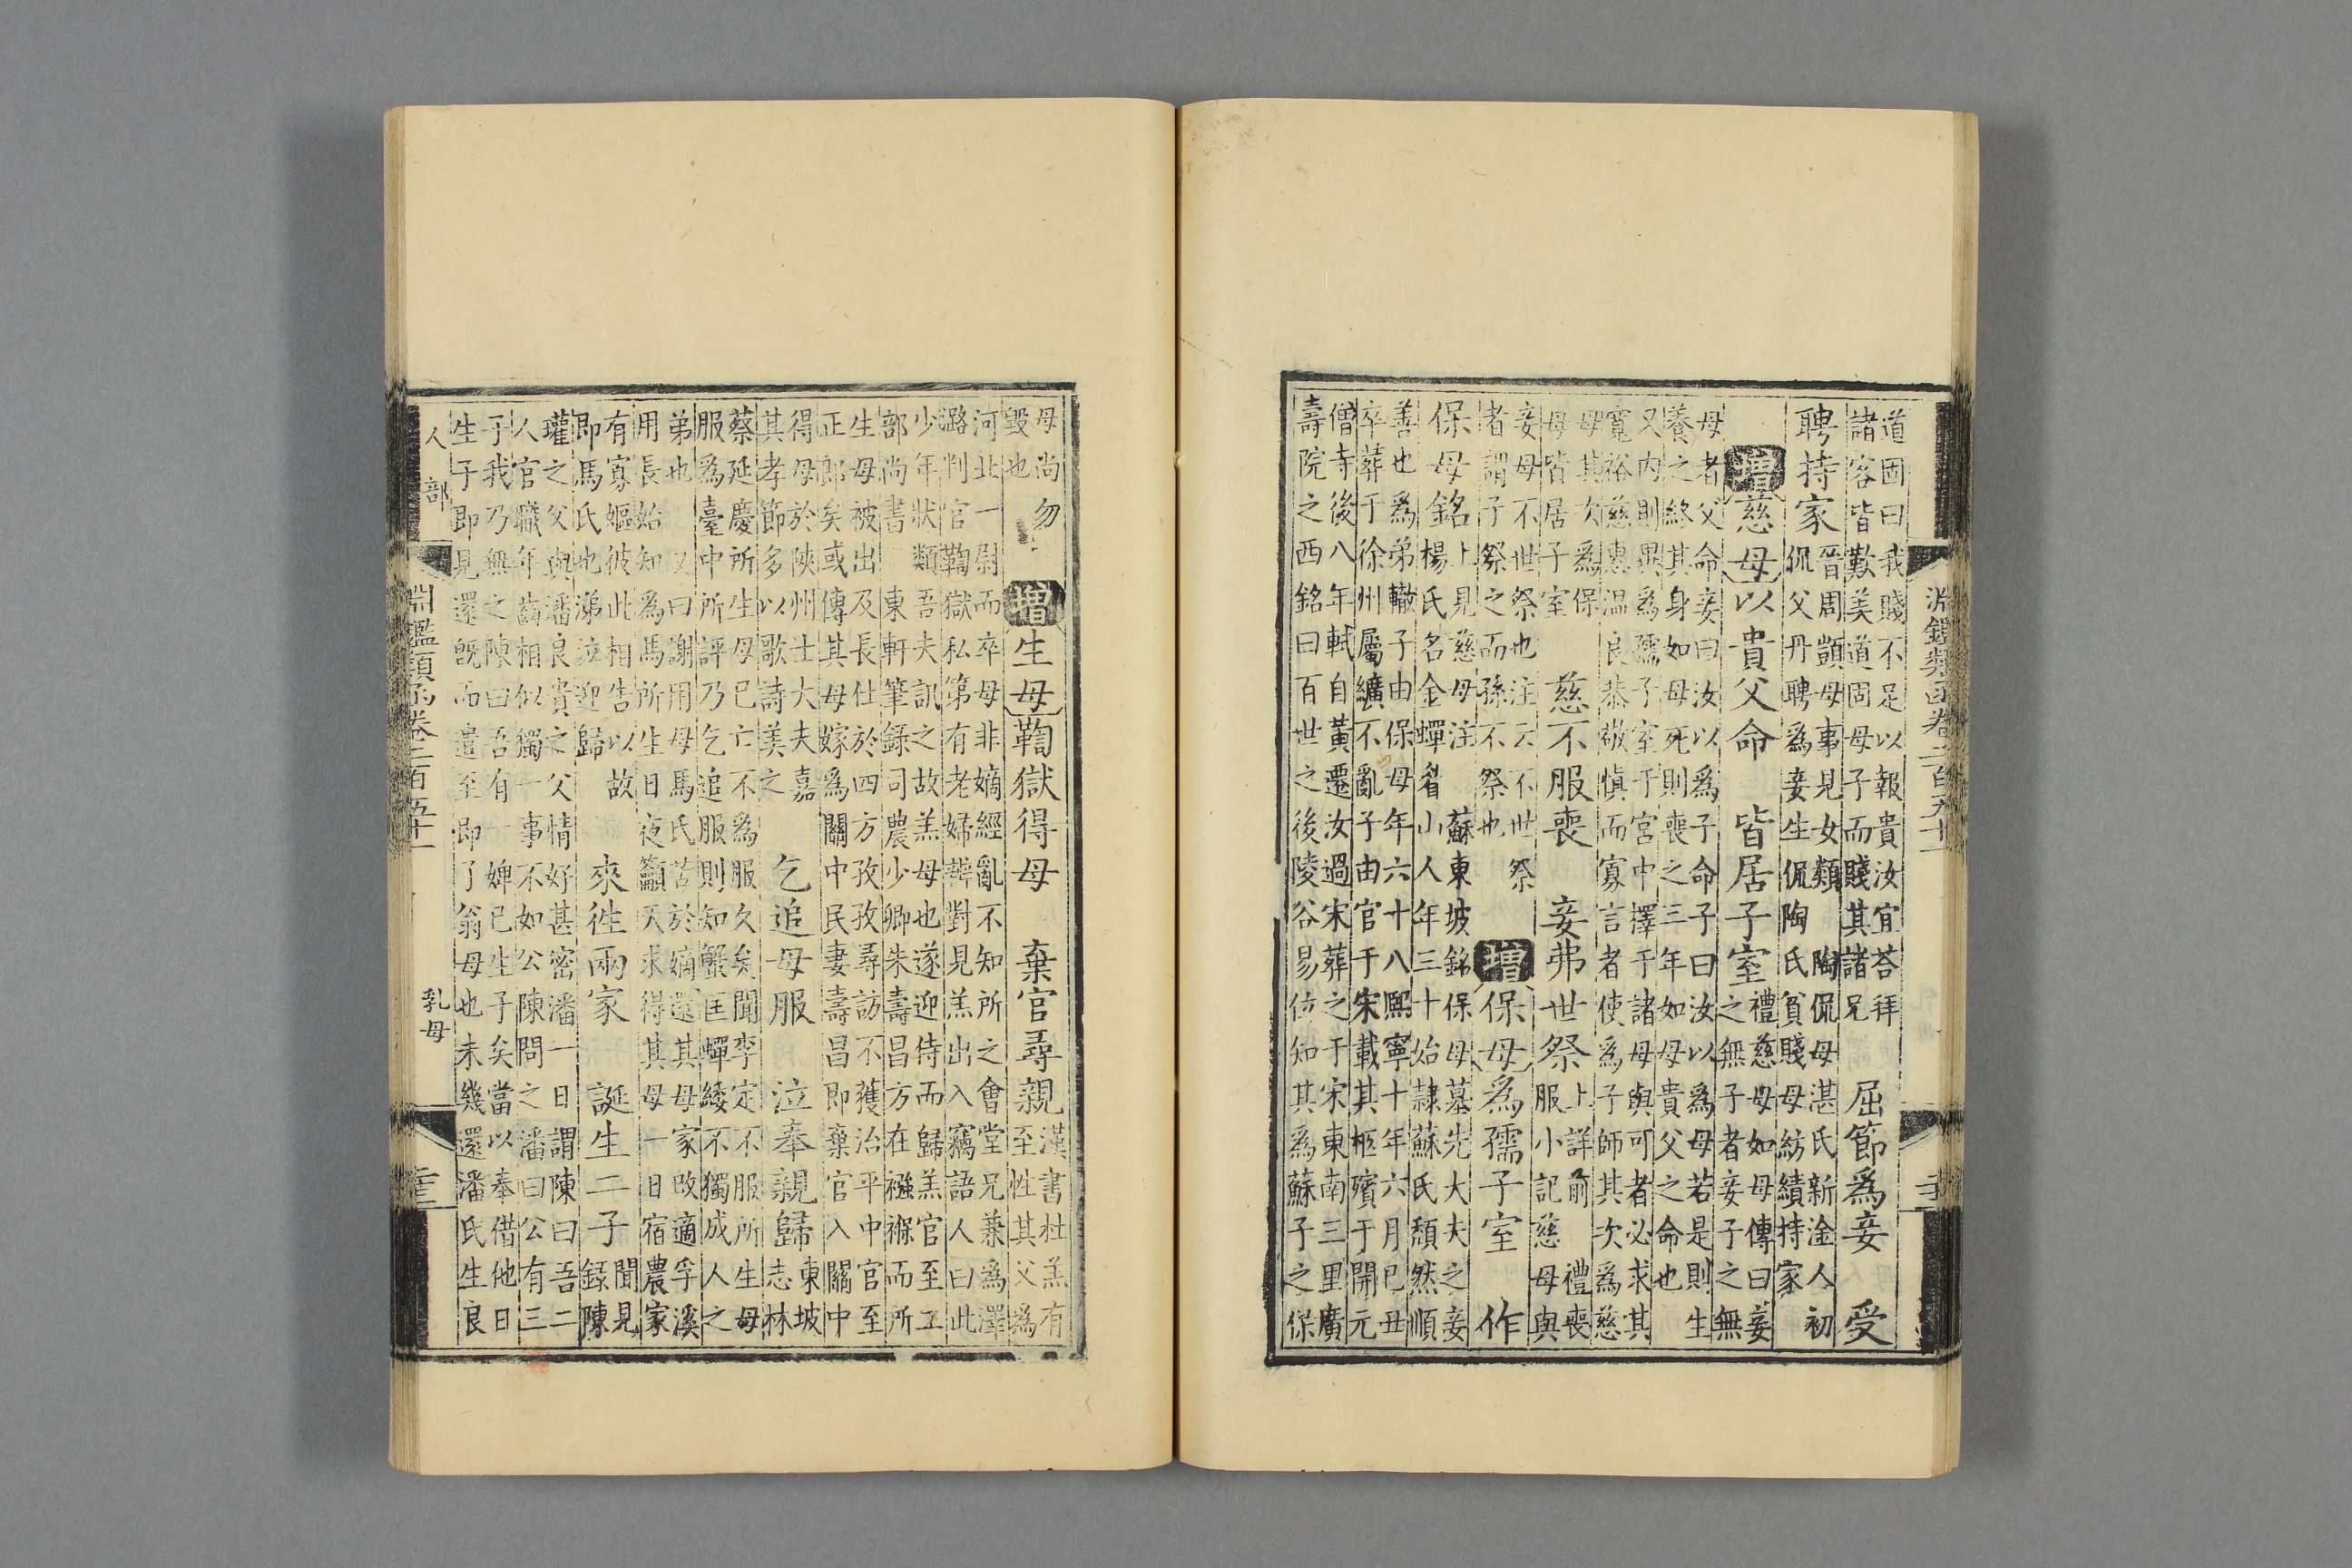 淵鑑類函卷二百五十一
道固曰我賤不足以報貴汝宜荅拜
諸客皆歎美道固母子而賤其諸兄
屈節爲妾　受
聘持家
晉周顗母事見女類　陶侃母湛氏新淦人初
侃父丹聘爲妾生侃陶氏貧賤母紡績持家
增慈母以貴父命　皆居子室
禮慈母如母傳曰妾
之無子者妾子之無
母者父命妾曰汝以爲子命子曰汝以爲母若是則生
養之終其身如母死則喪之三年如母貴父之命也
又內則異爲孺子室于宮中擇于諸母與可者必求其
寬裕慈惠溫良恭敬慎而寡言者使爲子師其次爲慈
母其次爲保
母皆居子室
慈不服喪　妾弗世祭
上詳前　禮喪
服小記慈母與
妾母不世祭也注云不世祭
者謂子祭之而孫不祭也
增保母爲孺子室　作
保母銘
上見慈母注　蘇東坡銘保母墓先大夫之妾
楊氏名金蟬眉山人年三十始隷蘇氏頹然順
善也爲弟轍子由保母年六十八熙寧十年六月己丑
卒葬于徐州屬纊不亂子由官于宋載其柩殯于開元
僧寺後八年軾自黃遷汝過宋葬之于宋東南三里廣
壽院之西銘曰百世之後陵谷易位知其爲蘇子之保
母尚勿
毀也
增生母鞫獄得母　棄官尋親
漢書杜羔有
至性其父爲
河北一尉而卒母非嫡經亂不知所之會堂兄兼爲澤
潞判官鞫獄私第有老婦辯對見羔出入竊語人曰此
少年狀類吾夫訊之故羔母也遂迎侍而歸羔官至工
部尚書　東軒筆錄司農少卿朱壽昌方在襁褓而所
生母被出及長仕於四方孜孜尋訪不獲治平中官至
正郎矣或傳其母嫁爲關中民妻壽昌即棄官入關中
得母於陝州士大夫嘉
其孝節多以歌詩美之
乞追母服　泣奉親歸
東坡
志林
蔡延慶所生母已亡不爲服久矣聞李定不服所生母
服爲臺中所評乃乞追服則知蟹匡蟬緌不獨成人之
弟也　又曰謝用母馬氏苦於嫡還其母家改適孚溪
用長始知爲馬所生日夜籲天求得其母一日宿農家
有寡嫗彼此相告以故
即馬氏也涕泣迎歸
來徃兩家　誕生二子
聞見
錄陳
瓘之父與潘良貴之父情好甚密潘一日謂陳曰吾二
人官職年齒相似獨一事不如公陳問之潘曰公有三
子我乃無之陳曰吾有一婢已生子矣當以奉借他日
生子即見還既而遣至即了翁母也未幾還潘氏生良
人部
淵鑑類函卷二百五十一
乳母